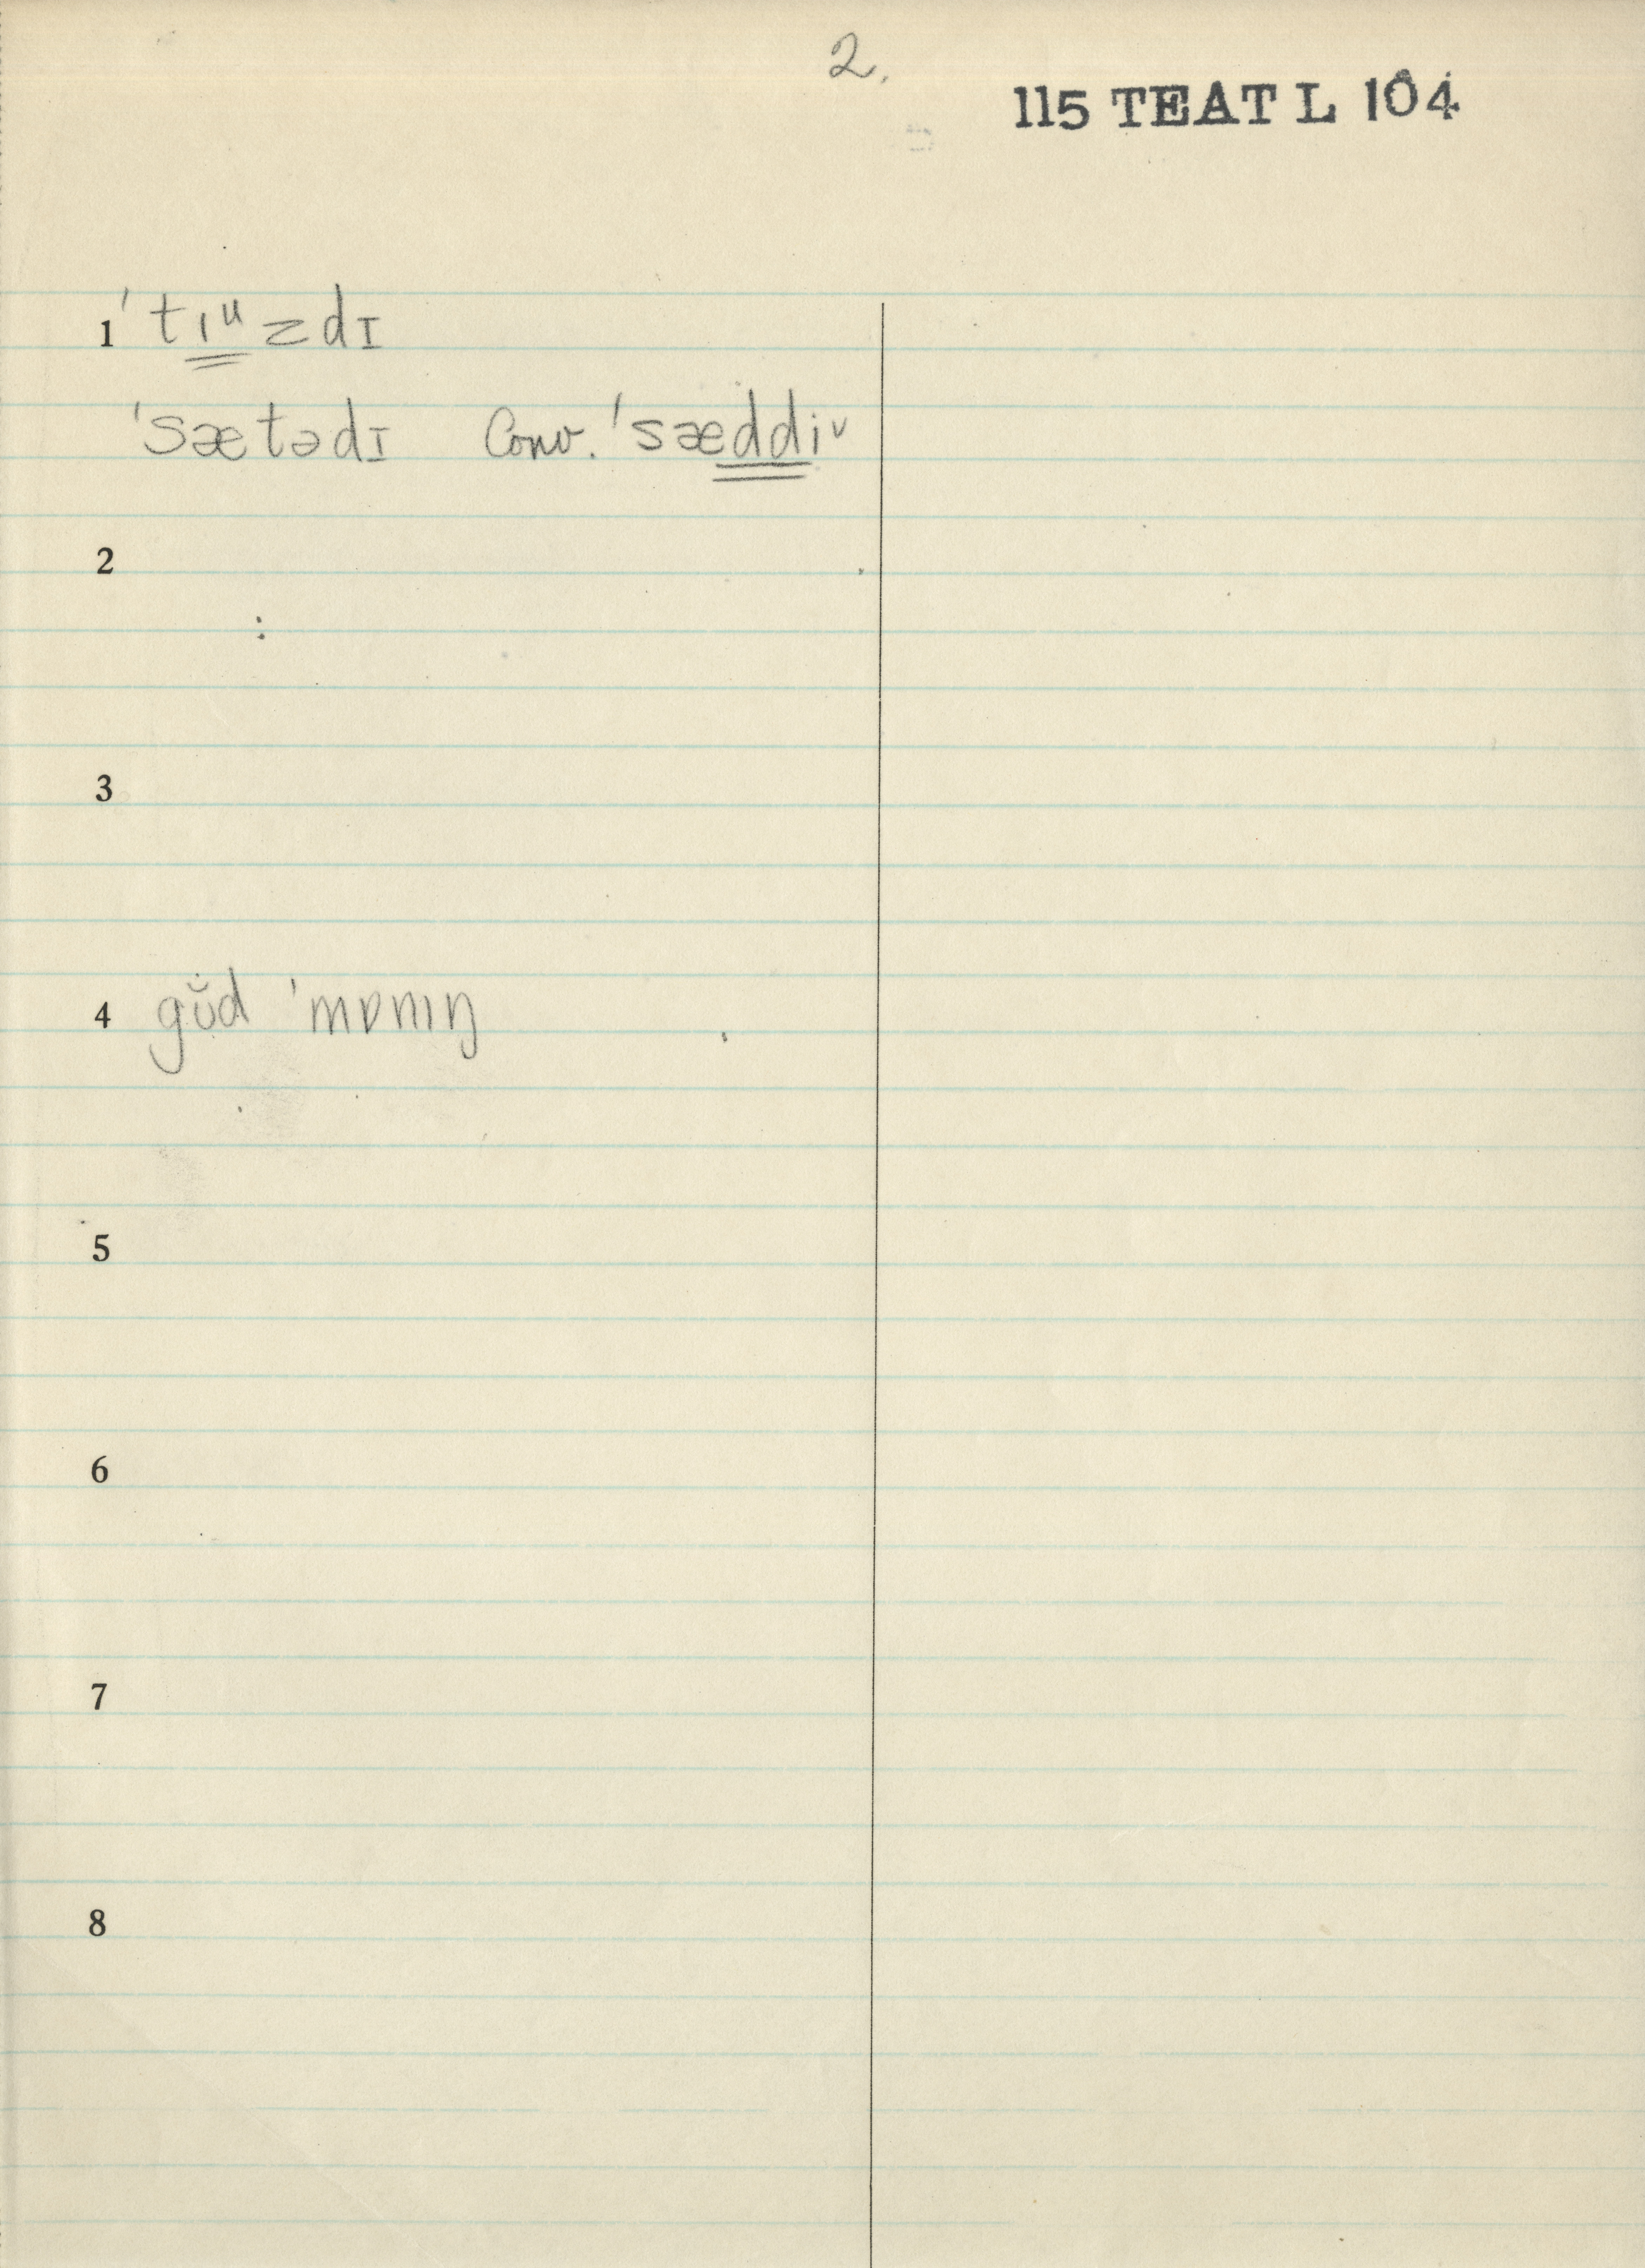 2.
115 TEAT L 104
1 ˈtɪᶸzdɪ
ˈsætədɪ Conv. ˈsæddiᵛ
2
3
4 gŭd ˈmɒnɪŋ
5
6
7
8